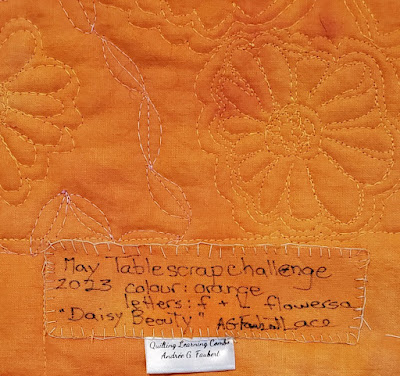 May Tablescrap challenge
2023 colour: orange
letters: f + L flowers a
"Daisy Beauty" AG Lace
Quilting Learning Combo
Andrée G. Faubert